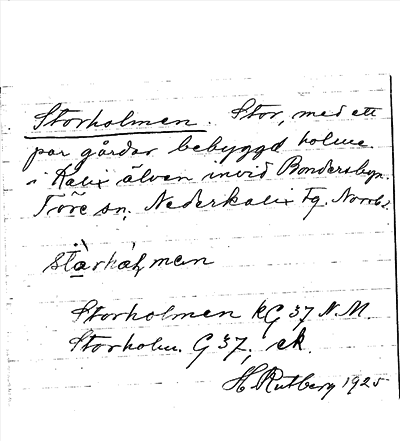 Storholmen. Stor, med ett
par gårdar bebyggd holme
i Kalix älven invid Bondersbyn.
Töre sn, Nederkalix tg. Norrb. l.
Storholmen KG 37 N.M.
Storholm. G 37, ek.
H. Rutberg 1925